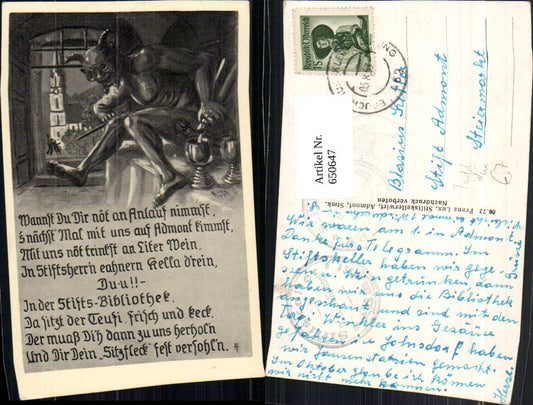 Wannst Du Dir nöt an Anlauf nimmst,
's nächst Mal mit uns auf Admont kimmst,
Mit uns nöt trinkst an Liter Wein,
In Stiftsherrn eahnern Kella drein,
Du-u!!-
In der Stifts-Bibliothek,
Da sitzt der Teufl frisch und keck.
Der muaß Dih dann zu uns herholn
Und Dir Dein „Sitzfleck“ fest versohln.
Artikel Nr.
650647
Republik Österreich
Blasius
Stift Admont
Steiermark
67
Franz Lux, Stiftskellerwirt, Admont, Stmk.
Nachdruck verboten
Wir waren am 1. in Admont,
Danke fürs Telegramm. Im
Stiftskeller haben wir geges-
sen u. Wein getrunken, dann
haben wir uns die Bibliothek
angeschaut und sind mit den
ins Gesäuse
gefahren. In Johnsdorf haben
wir Jausenstation gemacht.
Im Oktober glaube ich können
wir nicht mehr kommen.